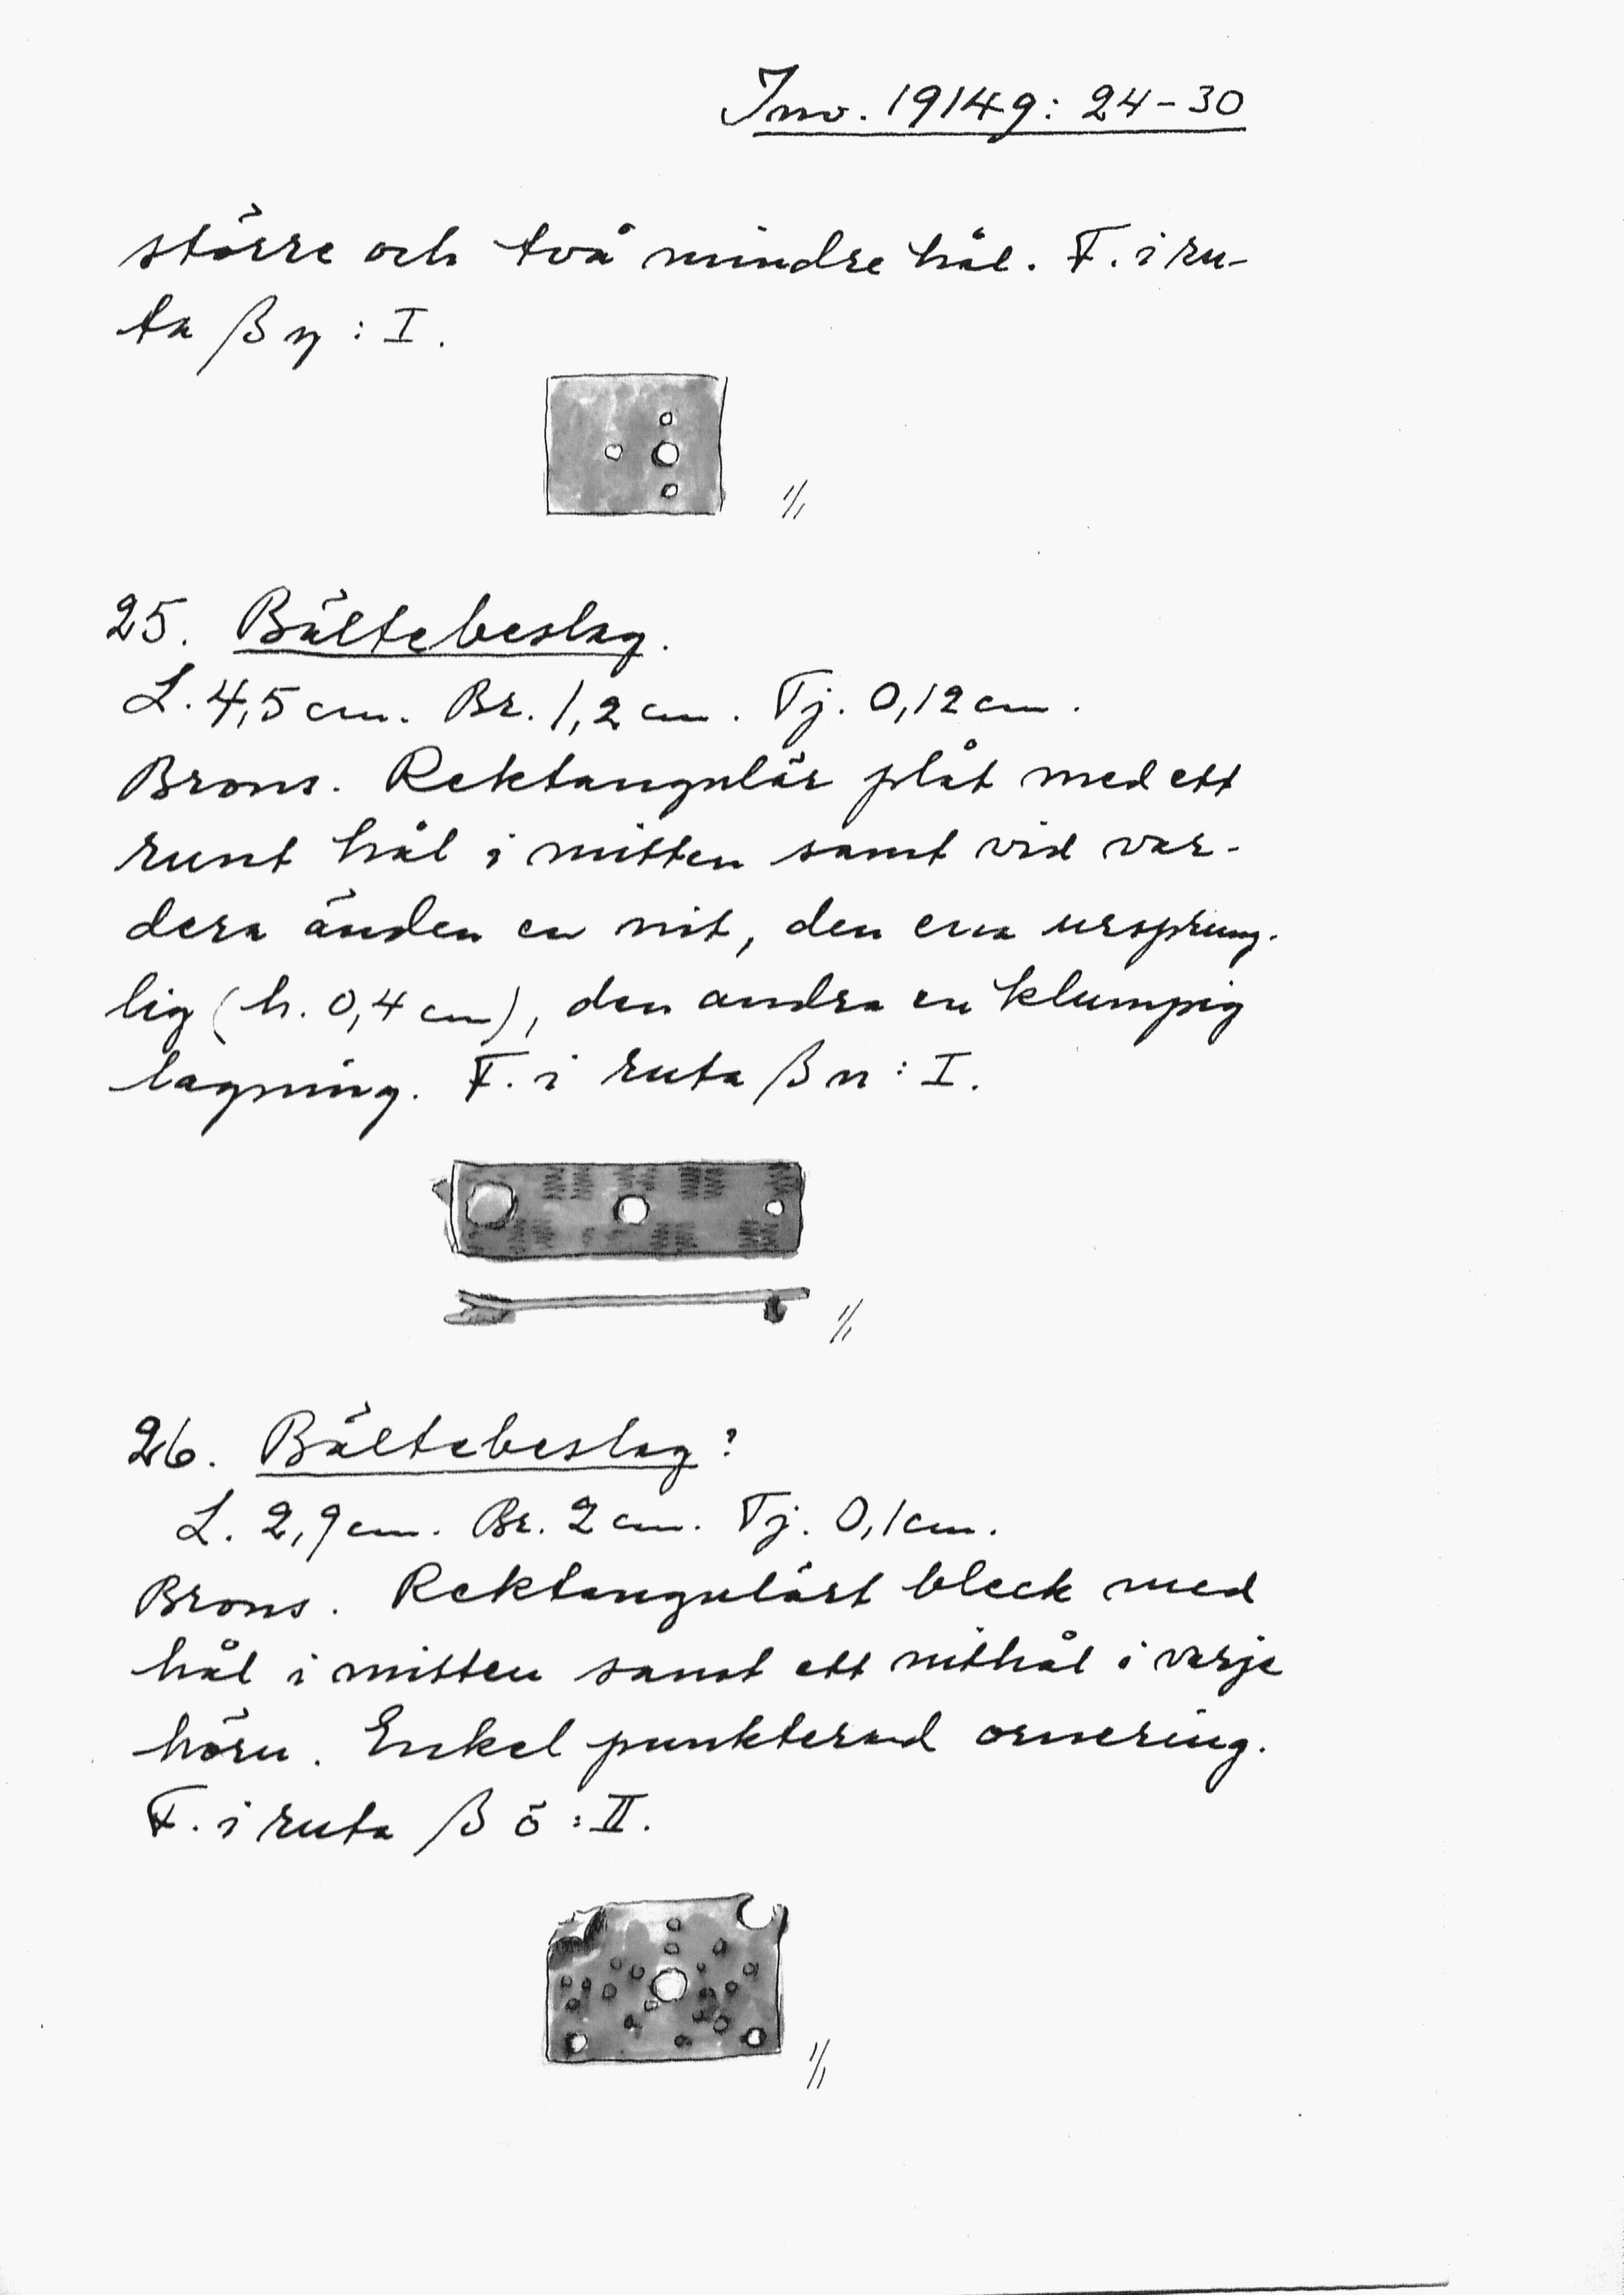 Inv. 19149: 24-30
större och två mindre hål. F. i ru-
ta β η : I.
1/1
25. Bältebeslag.
L. 4,5 cm. Br. 1,2 cm. Tj. 0,12 cm.
Brons. Rektangulär plåt med ett
runt hål i mitten samt vid var-
dera änden en nit, den ena ursprung-
lig (h. 0,4 cm), den andra en klumpig
lagning. F. i ruta β n : I.
1/1
26. Bältebeslag?
L. 2,9 cm. Br. 2 cm. Tj. 0,1 cm.
Brons. Rektangulärt bleck med
hål i mitten samt ett nithål i varje
hörn. Enkel punkterad ornering.
F. i ruta β ö : II.
1/1